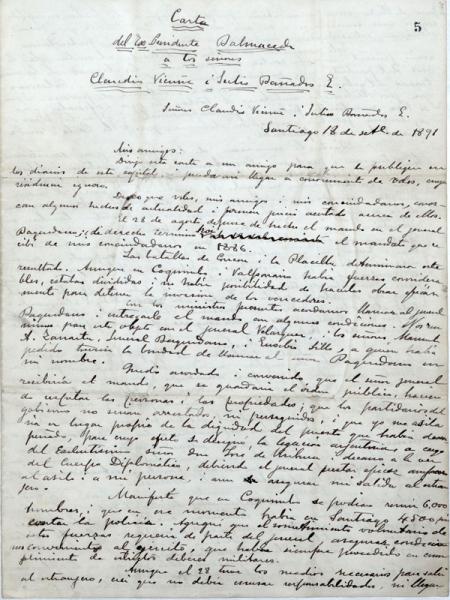 Carta
5
del Ex Presidente Balmaceda
a los señores
Claudio Vicuña i Julio Bañados E.
Señores Claudio Vicuña i Julio Bañados E.
Santiago 18 de set. de 1891
Mis amigos:
Dirijo esta carta a un amigo para que la publique en
los diarios de esta capital i pueda así llegar a conocimiento de todos, cuya
residencia ignoro.
Deseo que Uds, mis amigos i mis conciudadanos, conoz-
can algunos hechos de actualidad i formen juicio acertado acerca de ellos.
El 28 de agosto depuse de hecho el mando en el jeneral
Baquedano; i de derecho termina hoi el mandato que re-
cibí de mis conciudadanos en 1886.
Las batallas de Concon i la Placilla determinaron este
resultado. Aunque en Coquimbo i Valparaiso había fuerzas considera-
bles, estaban divididas i no había posibilidad de hacerlas obrar eficaz-
mente para detener la invasion de los vencedores.
Con los ministros presentes acordamos llamar al jeneral
Baquedano i entregarle el mando con algunas condiciones. Nos reu-
nimos para este objeto con el jeneral Velasquez i los señores Manuel
A. Zañartu, jeneral Baquedano, i Eusebio Lillo, a quien había
pedido tuviera la bondad de llamar al señor Baquedano en
mi nombre.
Quedó acordado i convenido que el señor jeneral
recibiría el mando, que se guardaría el órden público, hacien-
do respetar las personas i las propiedades, que los partidarios del
gobierno no serían arrestados ni perseguidos, i que yo me asila-
ría en lugar propio de la dignidad del puesto que había desem-
peñado, para cuyo efecto se designó la legacion arjentina a cargo
del Excelentísimo señor don José de Uriburu i decano a la vez
del Cuerpo Diplomático, debiendo el jeneral prestar eficaz amparo
al asilo i a mi persona i aun asegurar mi salida al estran-
jero.
Manifesté que en Coquimbo se podrían reunir 6,000
hombres, i que en ese momento había en Santiago 4.500 sin
contar la policía. Agregué que el sometimiento voluntario de
estas fuerzas requería de parte del jeneral asegurar condiciones
convenientes al ejército, que había siempre procedido en cum-
plimiento de estrictos deberes militares.
Aunque el 28 tuve los medios necesarios para salir
al estranjero, creí que no debía escusar responsabilidades, ni llegar